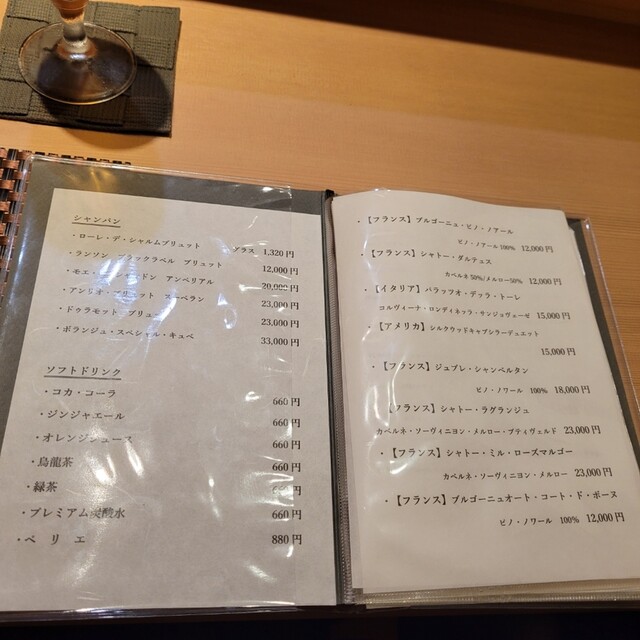 シャンパン
・ローレ・デ・シャルムブリュット グラス 1,320円
・ランソン ブラックラベル ブリュット 12,000円
・モエ・ ドン アンペリアル 20,000円
・アンリオ・ スーベラン 23,000円
・ドゥラモット・ブリュ 23,000円
・ボランジュ・スペシャル・キュベ 33,000円
ソフトドリンク
・コカ・コーラ 660円
・ジンジャエール 660円
・オレンジジュース 660円
・烏龍茶 660円
・緑茶 660円
・プレミアム炭酸水 660円
・ペリエ 880円
・【フランス】ブルゴーニュ・ピノ・ノアール
ピノ・ノアール 100% 12,000円
・【フランス】シャトー・ダルテュス
カベルネ50%/メルロー50% 12,000円
・【イタリア】パラッツオ・デッラ・トーレ
コルヴィーナ・ロンディネッラ・サンジョヴェーゼ 15,000円
・【アメリカ】シルクウッドキャブシラーデュエット
15,000円
・【フランス】ジュブレ・シャンベルタン
ピノ・ノワール 100% 18,000円
【フランス】シャトー・ラグランジュ
カベルネ・ソーヴィニヨン・メルロー・プティヴェルド 23,000円
・【フランス】シャトー・ミル・ローズマルゴー
カベルネ・ソーヴィニヨン・メルロー 23,000円
・【フランス】ブルゴーニュオート・コート・ド・ボーヌ
ピノ・ノワール 100% 12,000円